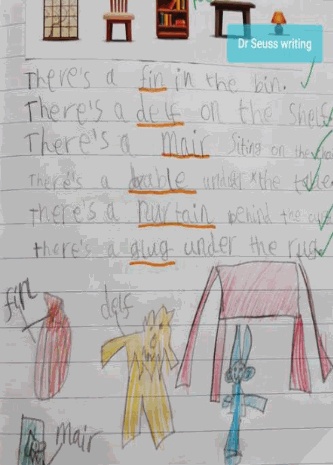 Dr Seuss writing
There's a fin in the bin.
There's a delf on the shelf
There's a mair Siting on the
There's a doable under the table
there's a nurtain behind the
there's a glug under the rug
fin
delf
mair